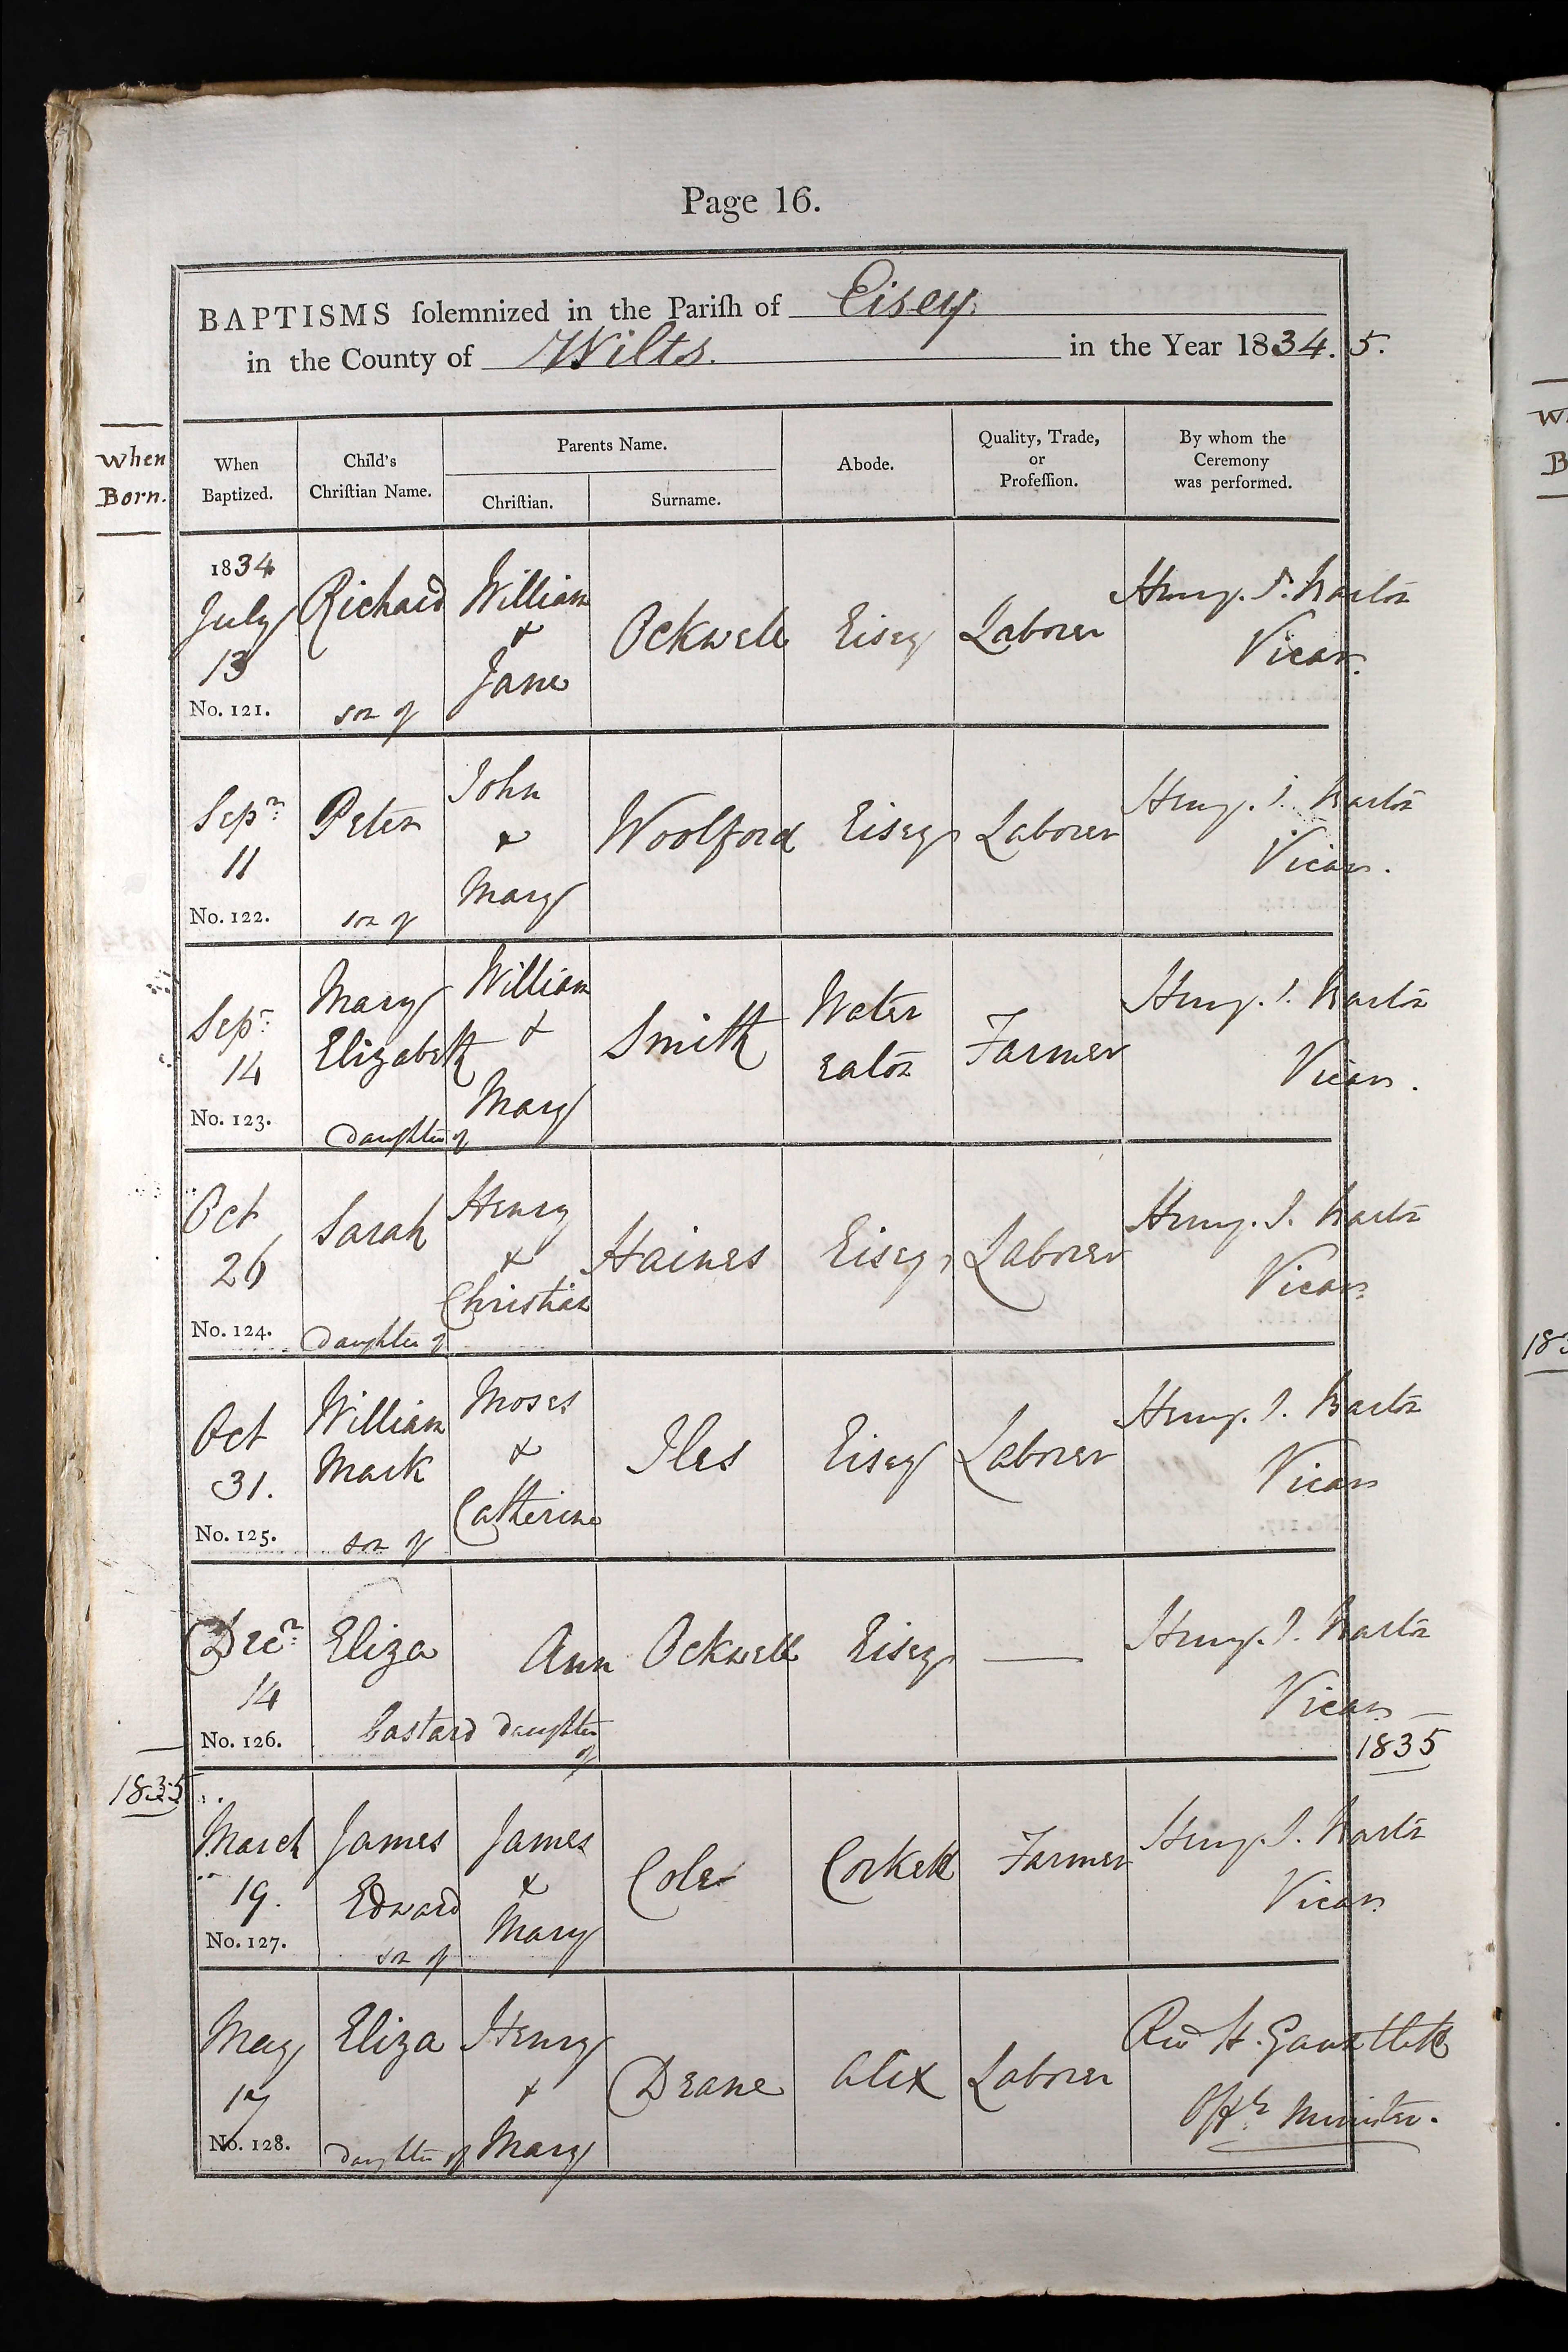 Page 16.
BAPTISMS ſolemnized in the Pariſh of Eisey.
in the County of Wilts. in the Year 1834. 5.
When Born.
When Baptized.
Child's Chriſtian Name.
Parents Name.
Chriſtian.
Surname.
Abode.
Quality, Trade, or Profeſſion.
By whom the Ceremony was performed.
1834
July 13
No. 121.
Richard
son of
William & Jane
Ockwell
Eisey
Laborer
Vicar.
Sepr. 11
No. 122.
Peter
son of
John & Mary
Woolford
Eisey
Laborer
Vicar.
Sepr. 14
No. 123.
Mary Elizabeth
Daughter of
William & Mary
Smith
Water Eaton
Farmer
Vicar.
Oct 26
No. 124.
Sarah
Daughter of
Henry & Christian
Haines
Eisey
Laborer
Vicar.
Oct 31.
No. 125.
William Mark
son of
Moses & Catherine
Iles
Eisey
Laborer
Vicar
Decr. 14
No. 126.
Eliza
bastard Daughter of
Ann
Ockwell
Eisey
—
Vicar
1835
1835
March 19.
No. 127.
James Edward
son of
James & Mary
Cole
Farmer
Vicar.
May 17
No. 128.
Eliza
Daughter of
Henry & Mary
Deane
Laborer
Minister.